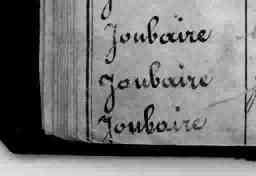 Joubaire
Joubaire
Joubaire